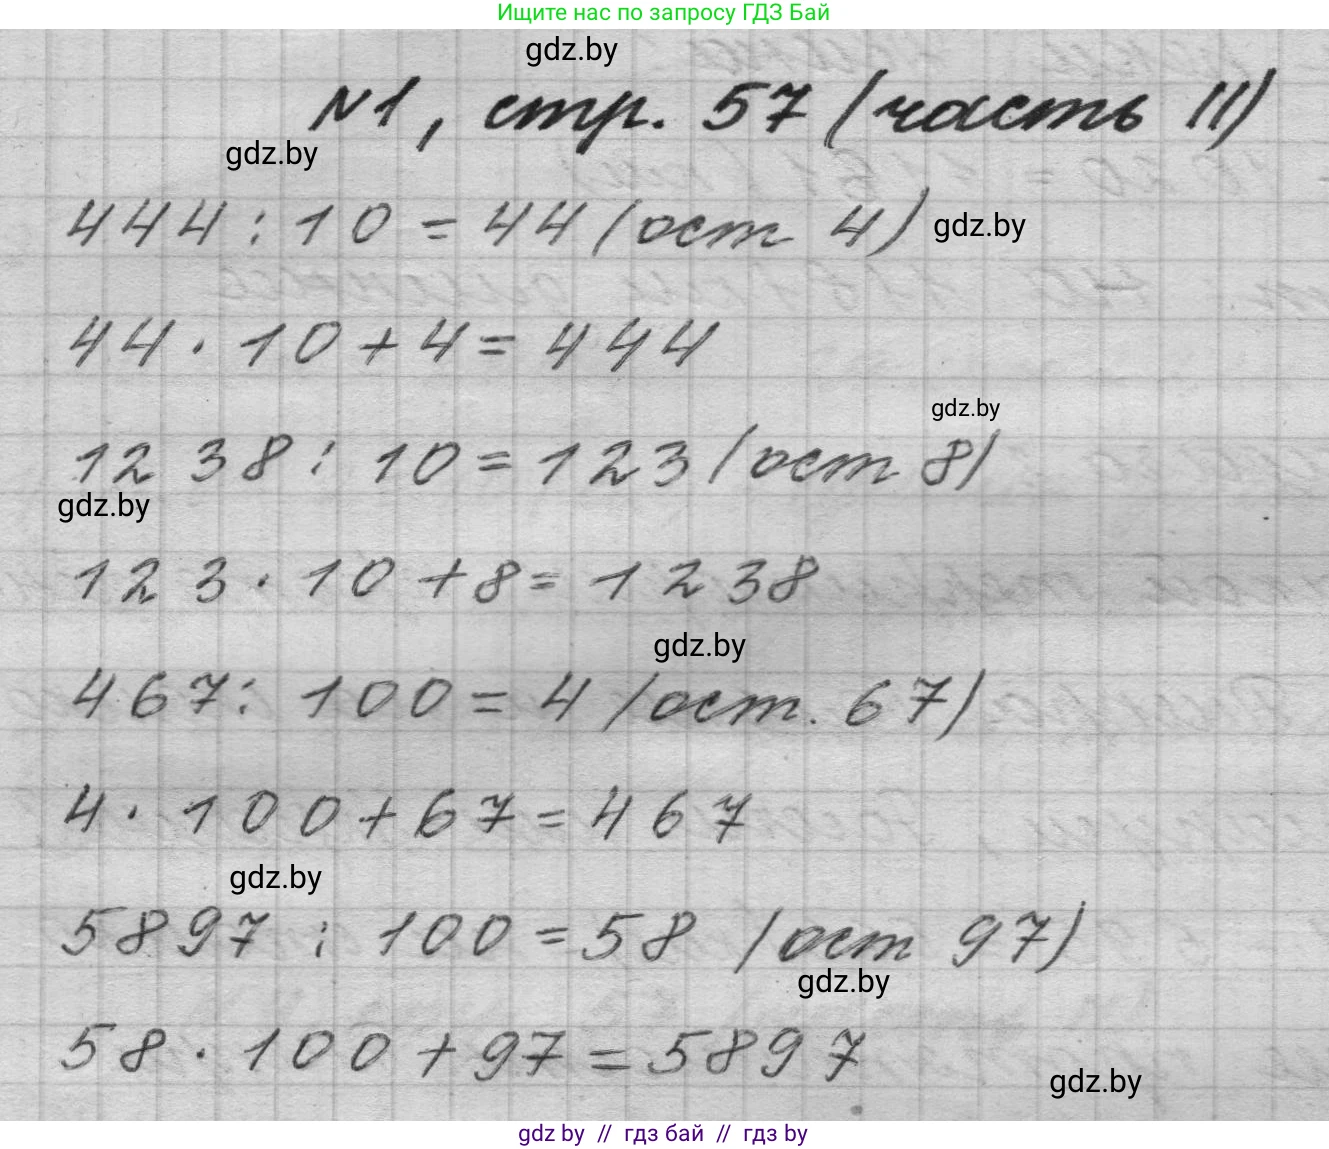 Ищите нас по запросу ГДЗ Бай
gdz.by
№1, стр. 57 (часть II)
gdz.by
444 : 10 = 44 (ост 4)
gdz.by
44 · 10 + 4 = 444
gdz.by
1238 : 10 = 123 (ост 8)
gdz.by
123 · 10 + 8 = 1238
gdz.by
467 : 100 = 4 (ост. 67)
4 · 100 + 67 = 467
gdz.by
5897 : 100 = 58 (ост 97)
gdz.by
58 · 100 + 97 = 5897
gdz.by
gdz by // гдз бай // гдз by